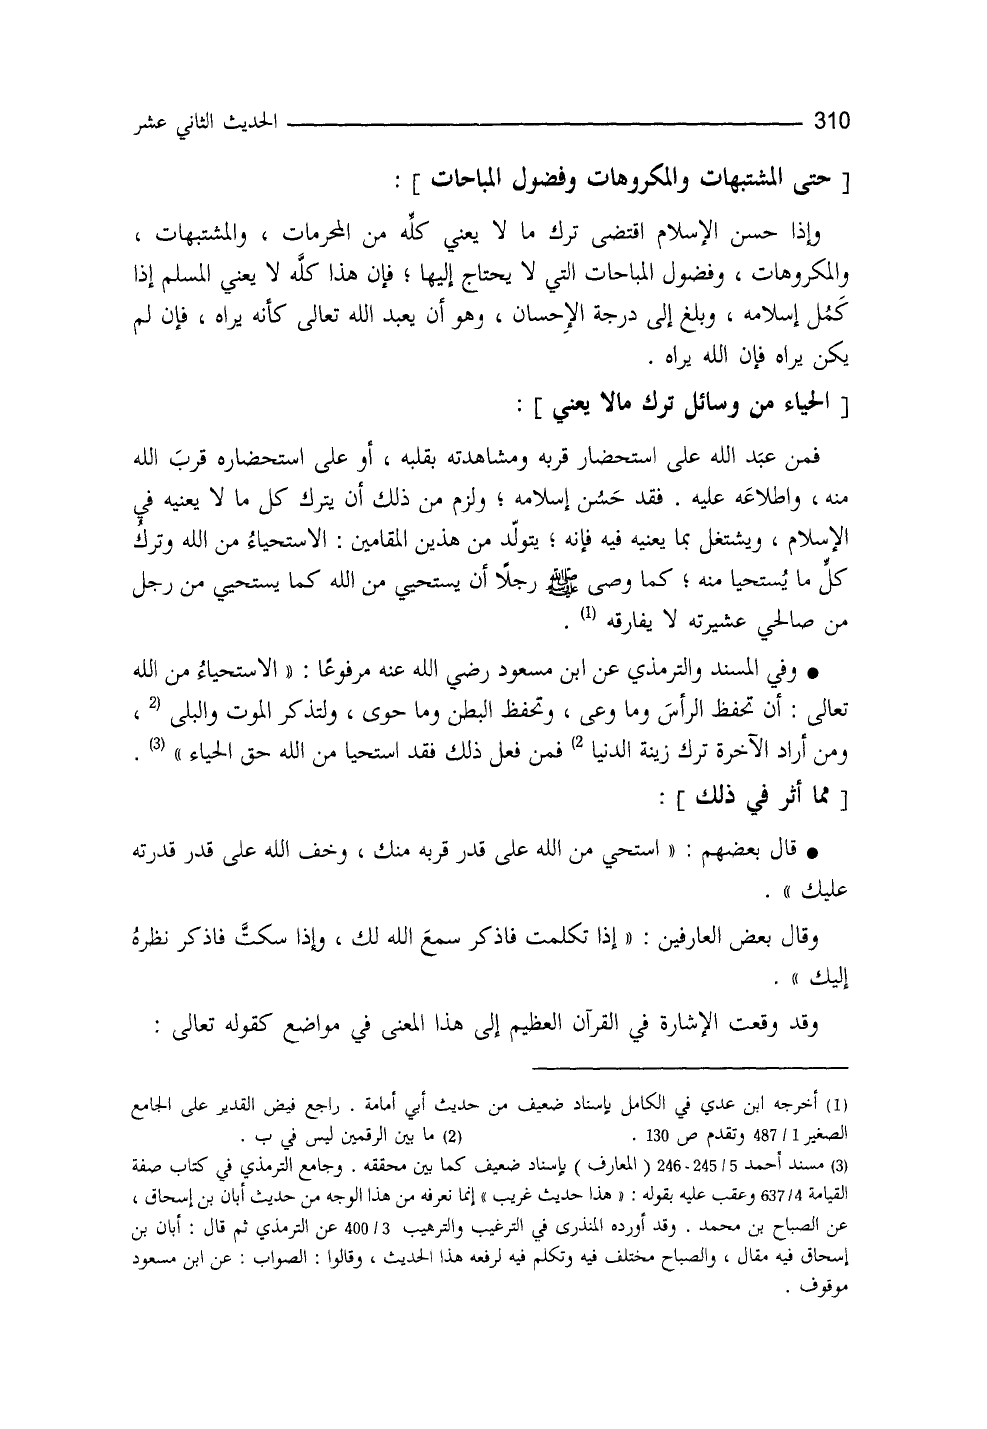 310 الحديث الثاني عشر
[ حتى المشتبهات والمكروهات وفضول المباحات ] :
وإذا حسن الإسلام اقتضى ترك ما لا يعني كلِّه من المحرمات ، والمشتبهات ،
والمكروهات ، وفضول المباحات التي لا يحتاج إليها ؛ فإن هذا كلَّه لا يعني المسلم إذا
كَمُل إسلامه ، وبلغ إلى درجة الإحسان ، وهو أن يعبد الله تعالى كأنه يراه ، فإن لم
يكن يراه فإن الله يراه .
[ الحياء من وسائل ترك مالا يعني ] :
فمن عبَد الله على استحضار قربه ومشاهدته بقلبه ، أو على استحضاره قربَ الله
منه ، واطلاعَه عليه . فقد حَسُن إسلامه ؛ ولزم من ذلك أن يترك كل ما لا يعنيه في
الإسلام ، ويشتغل بما يعنيه فيه فإنه ؛ يتولّد من هذين المقامين : الاستحياءُ من الله وتركُ
كلِّ ما يُستحيا منه ؛ كما وصى ﷺ رجلًا أن يستحيي من الله كما يستحيي من رجل
من صالحي عشيرته لا يفارقه (1) .
● وفي المسند والترمذي عن ابن مسعود رضي الله عنه مرفوعًا : « الاستحياءُ من الله
تعالى : أن تحفظ الرأسَ وما وعى ، وتحفظ البطن وما حوى ، ولتذكر الموت والبلى (2 ،
ومن أراد الآخرة ترك زينة الدنيا 2) فمن فعل ذلك فقد استحيا من الله حق الحياء » (3) .
[ مما أثر في ذلك ] :
● قال بعضهم : « استحي من الله على قدر قربه منك ، وخف الله على قدر قدرته
عليك » .
وقال بعض العارفين : « إذا تكلمت فاذكر سمعَ الله لك ، وإذا سكتَّ فاذكر نظرهُ
إليك » .
وقد وقعت الإشارة في القرآن العظيم إلى هذا المعنى في مواضع كقوله تعالى :
(1) أخرجه ابن عدي في الكامل بإسناد ضعيف من حديث أبي أمامة . راجع فيض القدير على الجامع
الصغير 1 / 487 وتقدم ص 130 . (2) ما بين الرقمين ليس في ب .
(3) مسند أحمد 5 / 245 - 246 ( المعارف ) بإسناد ضعيف كما بين محققه . وجامع الترمذي في كتاب صفة
القيامة 4/ 637 وعقب عليه بقوله : « هذا حديث غريب » إنما نعرفه من هذا الوجه من حديث أبان بن إسحاق ،
عن الصباح بن محمد . وقد أورده المنذرى في الترغيب والترهيب 3 / 400 عن الترمذي ثم قال : أبان بن
إسحاق فيه مقال ، والصباح مختلف فيه وتكلم فيه لرفعه هذا الحديث ، وقالوا : الصواب : عن ابن مسعود
موقوف .